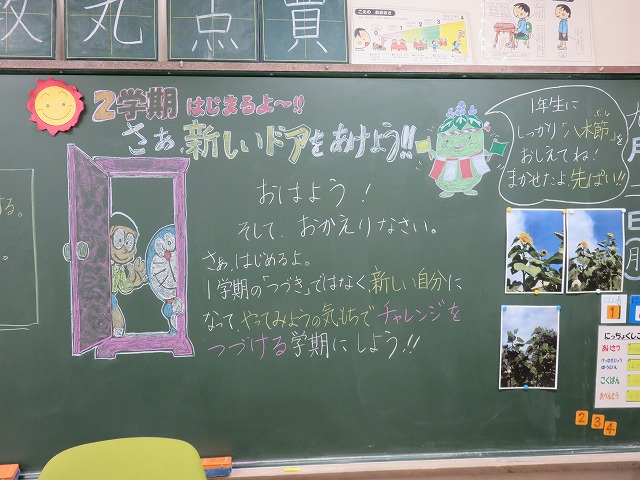 丸
点
貫
2学期 はじまるよ〜!!
さぁ、新しいドアをあけよう!!
おはよう!
そして、おかえりなさい。
さぁ、はじめるよ。
1学期の「つづき」ではなく新しい自分に
なって、やってみようの気もちでチャレンジを
つづける学期にしよう!!
1年生に
しっかり「八木節」を
ぶし
おしえてね!
まかせたよ、先ぱい!!
する。
月
日
1
にっちょくしごと
あいさつ
こくばん
2 3 4